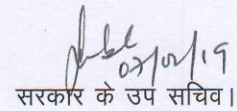 07/02/19
सरकार के उप सचिव।